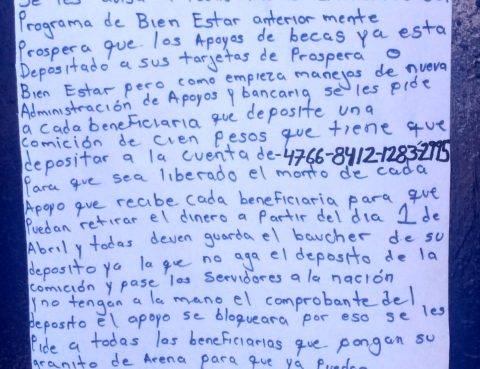 Programa de Bien Estar anterior mente
Prospera que los Apoyos de becas ya esta
Depositado a sus tarjetas de Prospera o
Bien Estar pero como empieza manejos de nueva
Administración de Apoyos y bancaria se les pide
a cada beneficiaria que deposite una
comición de cien pesos que tiene que
depositar a la cuenta de-4766-8412-12832995
Para que sea liberado el monto de cada
Apoyo que recibe cada beneficiaria para que
Puedan retirar el dinero a Partir del dia 1 de
Abril y todas deven guarda el baucher de su
deposito ya la que no aga el deposito de la
comición y pase los Servidores a la nación
y no tengan a la mano el comprobante del
deposito El apoyo se bloqueara por eso se les
Pide a todas las beneficiarias que pongan su
granito de Arena para que ya